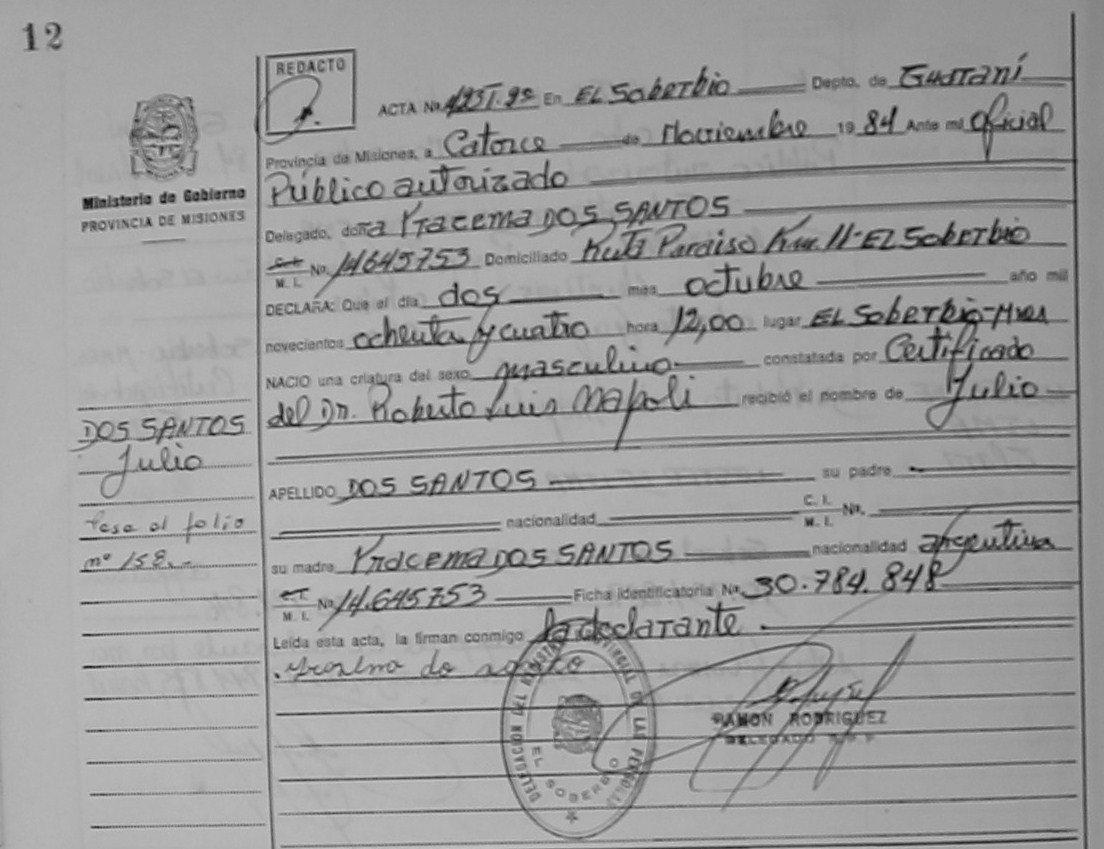 12
REDACTO
ACTA No. En EL Soberbio Depto. de Guaraní
Provincia de Misiones, a Catorce de Noviembre 1984 Ante mí Oficial
Público autorizado
Delegado, doña Yracema DOS SANTOS
M. I. No. 14645753 Domiciliado Ruta Paraiso Km. 11-EL Soberbio
DECLARA: Que el día dos mes octubre año mil
novecientos ochenta y cuatro hora 12,00 lugar EL Soberbio-Mnes
NACIO una criatura del sexo masculino constatada por Certificado
del Dr. Roberto Luis Napoli recibió el nombre de Julio
APELLIDO DOS SANTOS su padre
nacionalidad C. I. M. I. No.
su madre Yracema DOS SANTOS nacionalidad argentina
M. I. No. 14.645753 Ficha identificatoria No. 30.784.848
Leída esta acta, la firman conmigo la declarante.
Ministerio de Gobierno
PROVINCIA DE MISIONES
DOS SANTOS
Julio
Pasa al folio
nº 158.-
DELEGACION DEL REGISTRO PROVINCIAL DE LAS PERSONAS
EL SOBERBIO
RAMON RODRIGUEZ
DELEGADO R.P.P.